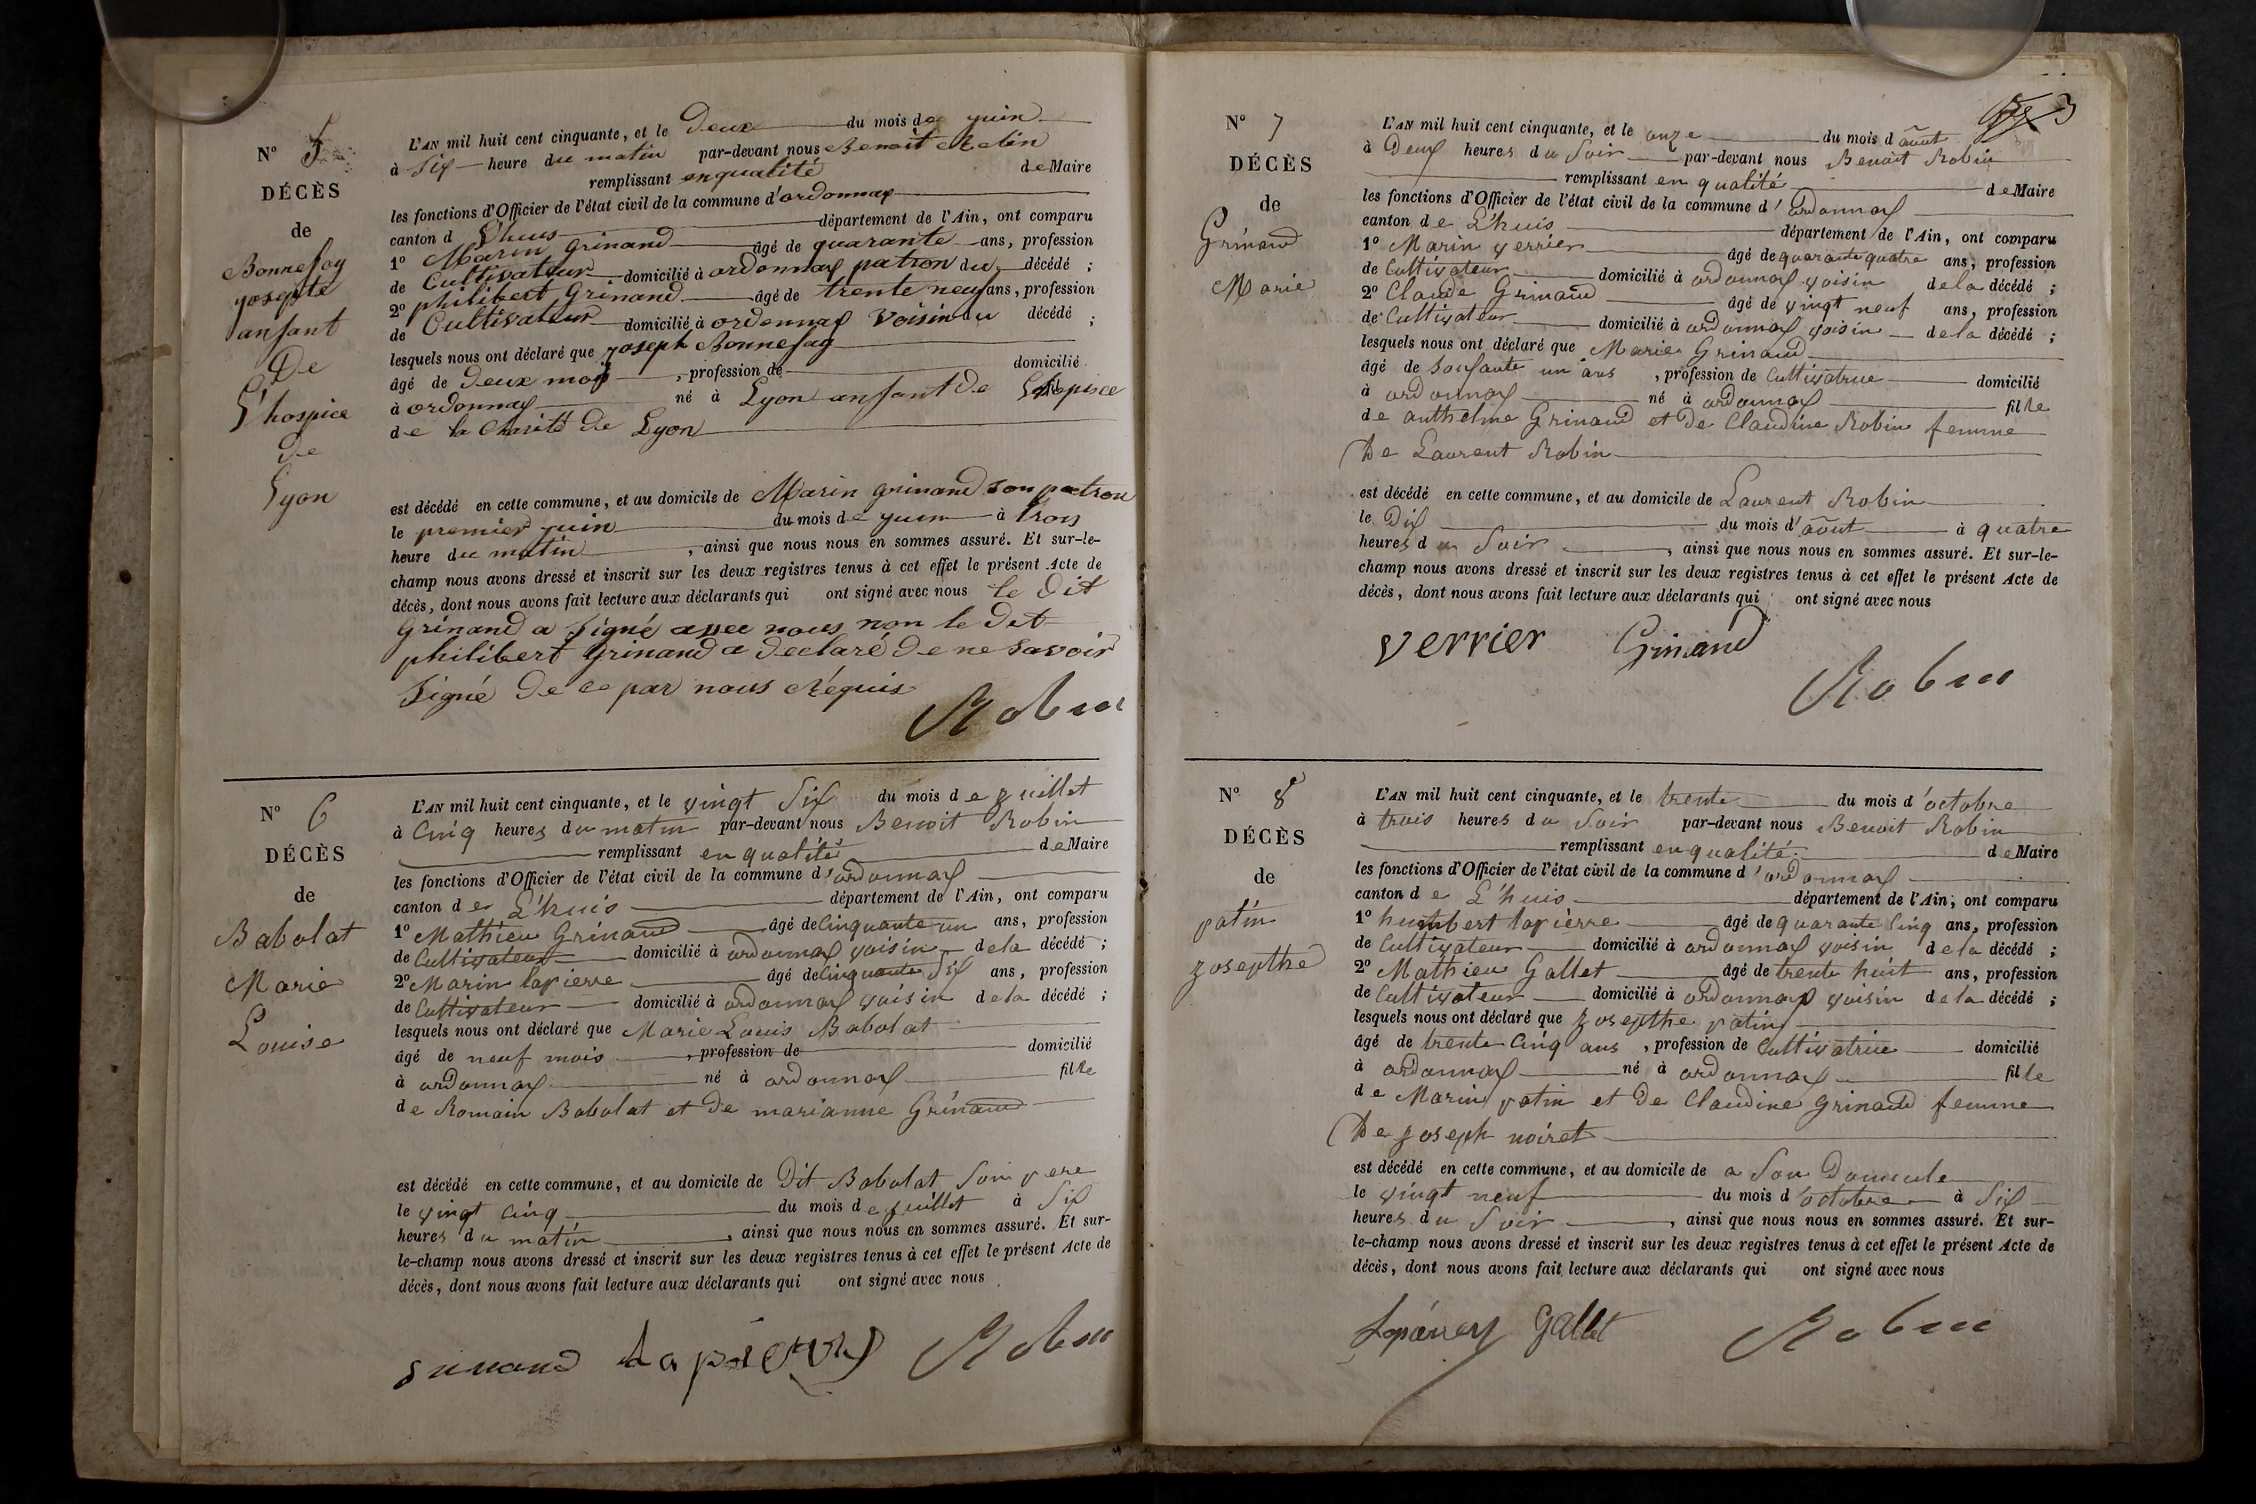 N° 5
DÉCÈS
de
Bonnefoy
yosepte
anfant
De
L'hospice
de
Lyon
L'AN mil huit cent cinquante, et le Deux du mois de yuin
à Six heure du matin par-devant nous Benoit Robin
remplissant en qualité de Maire
les fonctions d'Officier de l'état civil de la commune d'ordonnax
canton d L'huis département de l'Ain, ont comparu
1° Marin Grinand âgé de quarante ans, profession
de Cultivateur domicilié à ordonnax patron du décédé ;
2° philibert Grinand âgé de trente neuf ans, profession
de Cultivateur domicilié à ordonnax Voisin du décédé ;
lesquels nous ont déclaré que yoseph Bonnefoy
âgé de deux mois , profession de domicilié
à ordonnax né à Lyon anfant de L'hospice
de la Charité de Lyon
est décédé en cette commune, et au domicile de Marin grinand son patron
le premier yuin du mois de yuin à trois
heure du matin , ainsi que nous nous en sommes assuré. Et sur-le-
champ nous avons dressé et inscrit sur les deux registres tenus à cet effet le présent Acte de
décès, dont nous avons fait lecture aux déclarants qui ont signé avec nous le dit
Grinand a Signé avec nous non le Det
philibert Grinand a declaré de ne savoir
Signé De ce par nous Réquis
Robin
N° 6
DÉCÈS
de
Babolat
Marie
Louise
L'AN mil huit cent cinquante, et le vingt Six du mois de juillet
à Cinq heures du matin par-devant nous Benoit Robin
remplissant en qualité de Maire
les fonctions d'Officier de l'état civil de la commune d'ordonnax
canton de L'huis département de l'Ain, ont comparu
1° Mathieu Grinand âgé de Cinquante un ans, profession
de Cultivateur domicilié à ordonnax voisin de la décédé ;
2° Marin lapierre âgé de Cinquante Six ans, profession
de Cultivateur domicilié à ordonnax voisin de la décédé ;
lesquels nous ont déclaré que Marie Louis Babolat
âgé de neuf mois , profession de domicilié
à ordonnax né à ordonnax fille
de Romain Babolat et de marianne Grinand
est décédé en cette commune, et au domicile de Dit Babolat Son pere
le vingt Cinq du mois de juillet à Six
heures du matin , ainsi que nous nous en sommes assuré. Et sur-
le-champ nous avons dressé et inscrit sur les deux registres tenus à cet effet le présent Acte de
décès, dont nous avons fait lecture aux déclarants qui ont signé avec nous
grinand Lapierre Robin
3
N° 7
DÉCÈS
de
Grinand
Marie
L'AN mil huit cent cinquante, et le onze du mois d'août
à Deux heures du Soir par-devant nous Benoit Robin
remplissant en qualité de Maire
les fonctions d'Officier de l'état civil de la commune d'ordonnax
canton de L'huis département de l'Ain, ont comparu
1° Marin verrier âgé de quarante quatre ans, profession
de Cultivateur domicilié à ordonnax voisin de la décédé ;
2° Claude Grinand âgé de vingt neuf ans, profession
de Cultivateur domicilié à ordonnax voisin de la décédé ;
lesquels nous ont déclaré que Marie Grinand
âgé de Soixante un ans , profession de Cultivatrice domicilié
à ordonnax né à ordonnax fille
de anthelme Grinand et De Claudine Robin femme
De Laurent Robin
est décédé en cette commune, et au domicile de Laurent Robin
le Dix du mois d'août à quatre
heures du Soir , ainsi que nous nous en sommes assuré. Et sur-le-
champ nous avons dressé et inscrit sur les deux registres tenus à cet effet le présent Acte de
décès, dont nous avons fait lecture aux déclarants qui ont signé avec nous
Verrier Grinand
Robin
N° 8
DÉCÈS
de
patin
josepthe
L'AN mil huit cent cinquante, et le trente du mois d'octobre
à trois heures du Soir par-devant nous Benoit Robin
remplissant en qualité de Maire
les fonctions d'Officier de l'état civil de la commune d'ordonnax
canton de L'huis département de l'Ain, ont comparu
1° humbert lapierre âgé de quarante Cinq ans, profession
de Cultivateur domicilié à ordonnax voisin de la décédé ;
2° Mathieu Gallet âgé de trente huit ans, profession
de Cultivateur domicilié à ordonnax voisin de la décédé ;
lesquels nous ont déclaré que josepthe patin
âgé de trente Cinq ans , profession de Cultivatrice domicilié
à ordonnax né à ordonnax fille
de Marin patin et De Claudine grinand femme
De joseph noiret
est décédé en cette commune, et au domicile de a Son Domicile
le vingt neuf du mois d'octobre à Six
heures du Soir , ainsi que nous nous en sommes assuré. Et sur-
le-champ nous avons dressé et inscrit sur les deux registres tenus à cet effet le présent Acte de
décès, dont nous avons fait lecture aux déclarants qui ont signé avec nous
Gallet Robin